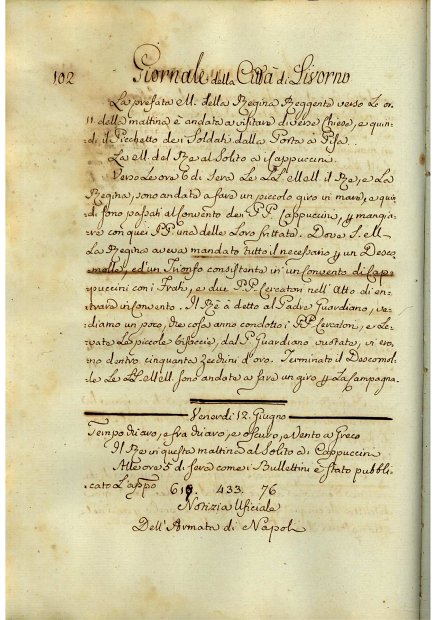 102 Giornale della Città di Livorno
La prefata M. della Regina Reggente verso le or
11. della mattina è andata a visitare diverse Chiese, e quin-
di il Picchetto dei Soldati dalla Porta à Pisa.
La M. del Re al Solito a i Cappuccini
Verso le ore 6 di Sera le LL. MM. il Re, e La
Regina, sono andate a fare un piccolo giro in mare, e quin-
di sono passati al Convento dei PP. Cappuccini, y mangia-
re con quei PP. una delle loro frittate. Dove S. M.
La Regina aveva mandato tutto il necessario y un Desco
molle, ed'un Trionfo consistente in un Convento di Cap-
puccini con i Frati, e due PP. Cercatori nell'Atto di en-
trare in Convento. Il Rè à detto al Padre Guardiano, ve-
diamo un poco, che cosa anno condotto i PP. Cercatori, e Le-
vate Le piccole bisaccie, dal P. Guardiano vuotate, vi ero-
no dentro cinquanta Zecchini d'oro. Terminato il Descomol-
le Le LL. MM. sono andate a fare un giro y La Campagna.
Venerdì 12. Giugno
Tempo chiaro, e fra chiaro, e oscuro, e Vento a Greco
Il Re in questa mattina al Solito a i Cappuccini
Alle ore 5 di sera come i Bullettini è stato pubbli-
cato L'app.o 619. 433. 76
Notizia Uficiale
Dell'Armata di Napoli